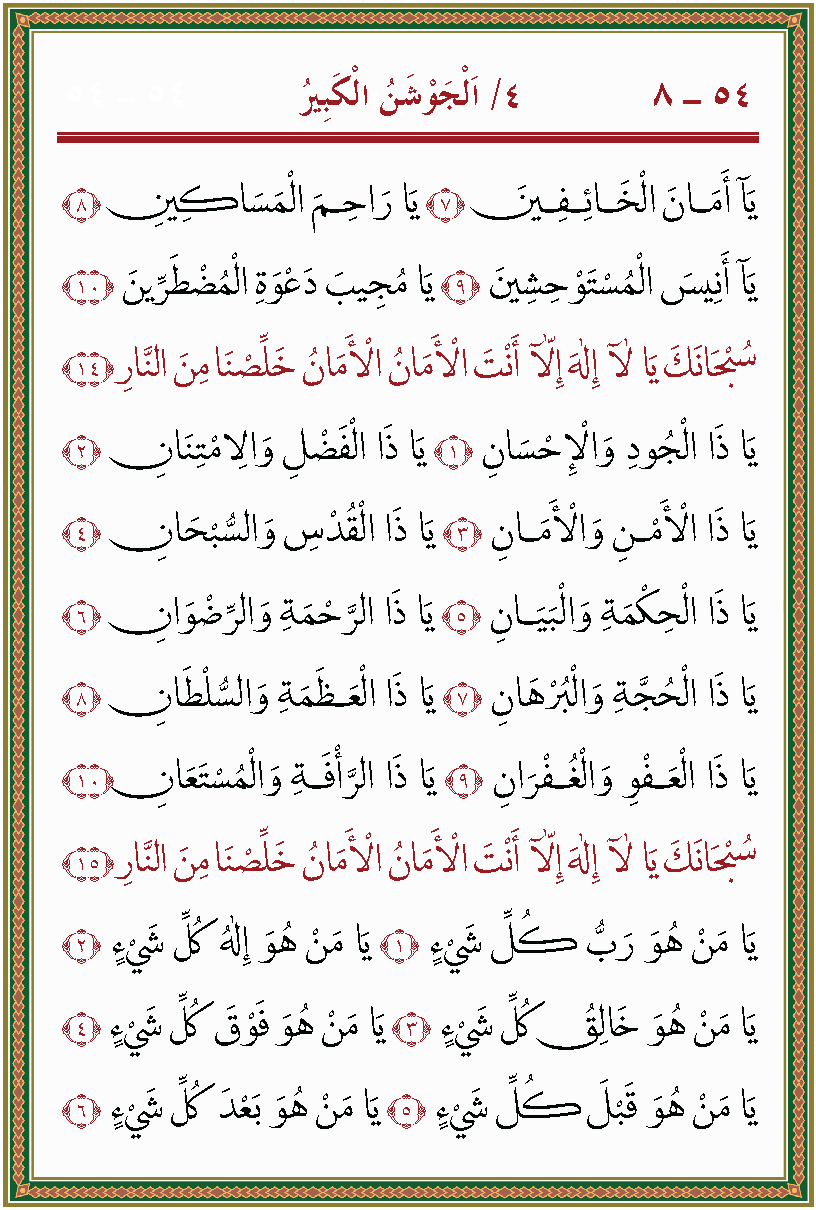 ٥٤ ــ ٨ ٤/ اَلْجَوْشَنُ الْكَبِيرُ
يَآ أَمَانَ الْخَائِفِينَ ﴿٧﴾ يَا رَاحِمَ الْمَسَاكِينِ ﴿٨﴾
يَآ أَنِيسَ الْمُسْتَوْحِشِينَ ﴿٩﴾ يَا مُجِيبَ دَعْوَةِ الْمُضْطَرِّينَ ﴿١٠﴾
سُبْحَانَكَ يَا لَآ إِلٰهَ إِلَّآ أَنْتَ الْأَمَانُ الْأَمَانُ خَلِّصْنَا مِنَ النَّارِ ﴿١٤﴾
يَا ذَا الْجُودِ وَالْإِحْسَانِ ﴿١﴾ يَا ذَا الْفَضْلِ وَالِامْتِنَانِ ﴿٢﴾
يَا ذَا الْأَمْنِ وَالْأَمَانِ ﴿٣﴾ يَا ذَا الْقُدْسِ وَالسُّبْحَانِ ﴿٤﴾
يَا ذَا الْحِكْمَةِ وَالْبَيَانِ ﴿٥﴾ يَا ذَا الرَّحْمَةِ وَالرِّضْوَانِ ﴿٦﴾
يَا ذَا الْحُجَّةِ وَالْبُرْهَانِ ﴿٧﴾ يَا ذَا الْعَظَمَةِ وَالسُّلْطَانِ ﴿٨﴾
يَا ذَا الْعَفْوِ وَالْغُفْرَانِ ﴿٩﴾ يَا ذَا الرَّأْفَةِ وَالْمُسْتَعَانِ ﴿١٠﴾
سُبْحَانَكَ يَا لَآ إِلٰهَ إِلَّآ أَنْتَ الْأَمَانُ الْأَمَانُ خَلِّصْنَا مِنَ النَّارِ ﴿١٥﴾
يَا مَنْ هُوَ رَبُّ كُلِّ شَيْءٍ ﴿١﴾ يَا مَنْ هُوَ إِلٰهُ كُلِّ شَيْءٍ ﴿٢﴾
يَا مَنْ هُوَ خَالِقُ كُلِّ شَيْءٍ ﴿٣﴾ يَا مَنْ هُوَ فَوْقَ كُلِّ شَيْءٍ ﴿٤﴾
يَا مَنْ هُوَ قَبْلَ كُلِّ شَيْءٍ ﴿٥﴾ يَا مَنْ هُوَ بَعْدَ كُلِّ شَيْءٍ ﴿٦﴾